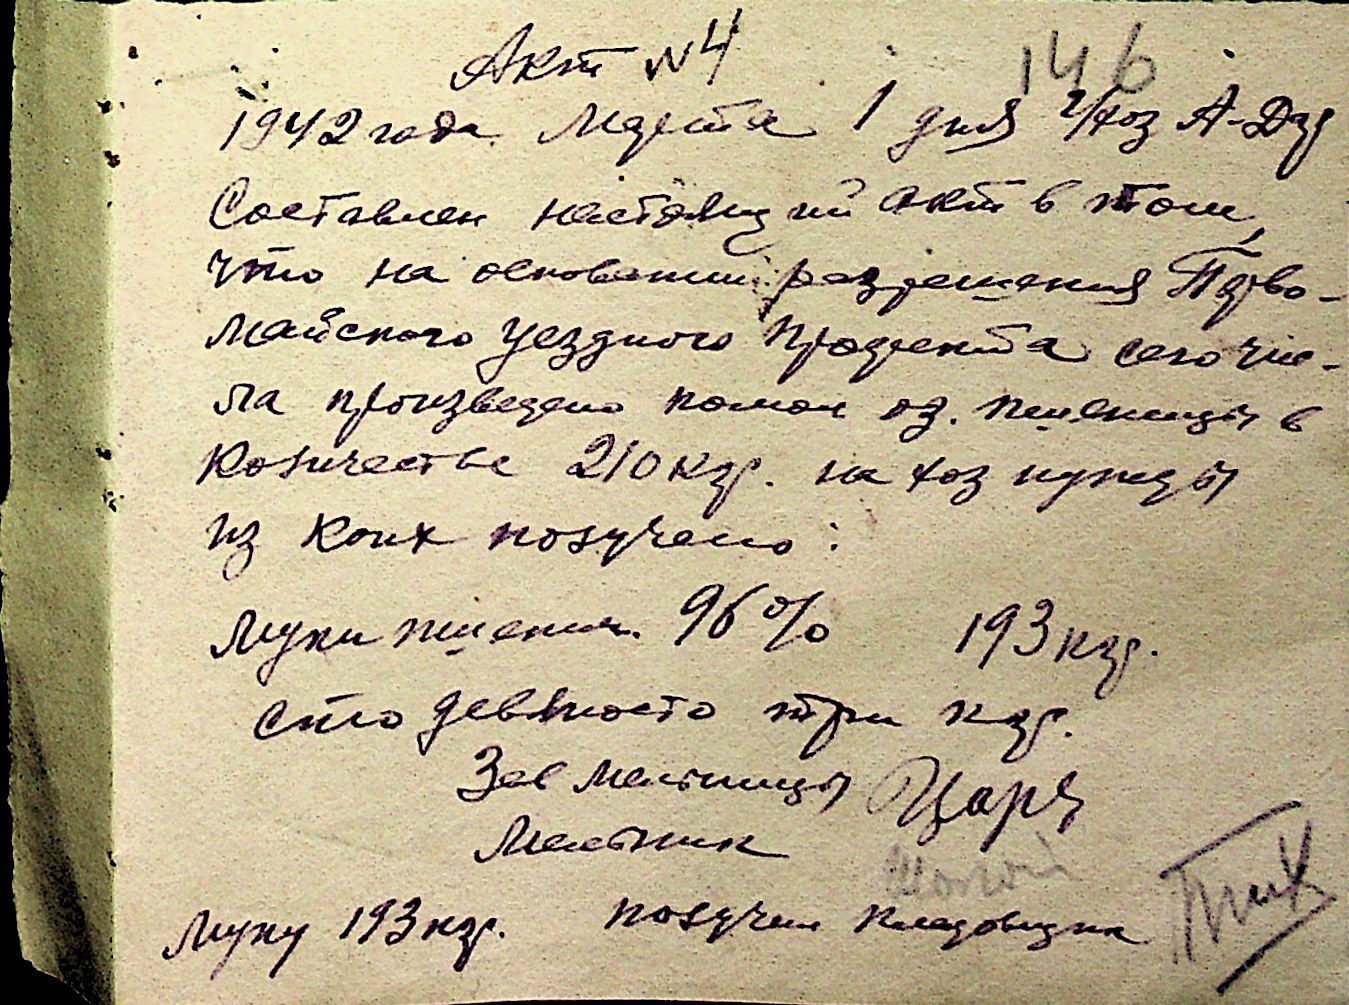 Акт №4
146
1942 года Марта 1 дня г/хоз А-Дар
Составлен настоящий акт в том,
что на основании разрешения Перво-
майского уездного Продпункта сего чис-
ла произведено помол оз. пшеницы в
количестве 210 кгр. на хоз нужды
из коих получено:
Муки пшенич. 96% 193 кгр.
сто девяносто три кгр.
Зав мельницы
Мельник
Муку 193 кгр. получил кладовщик